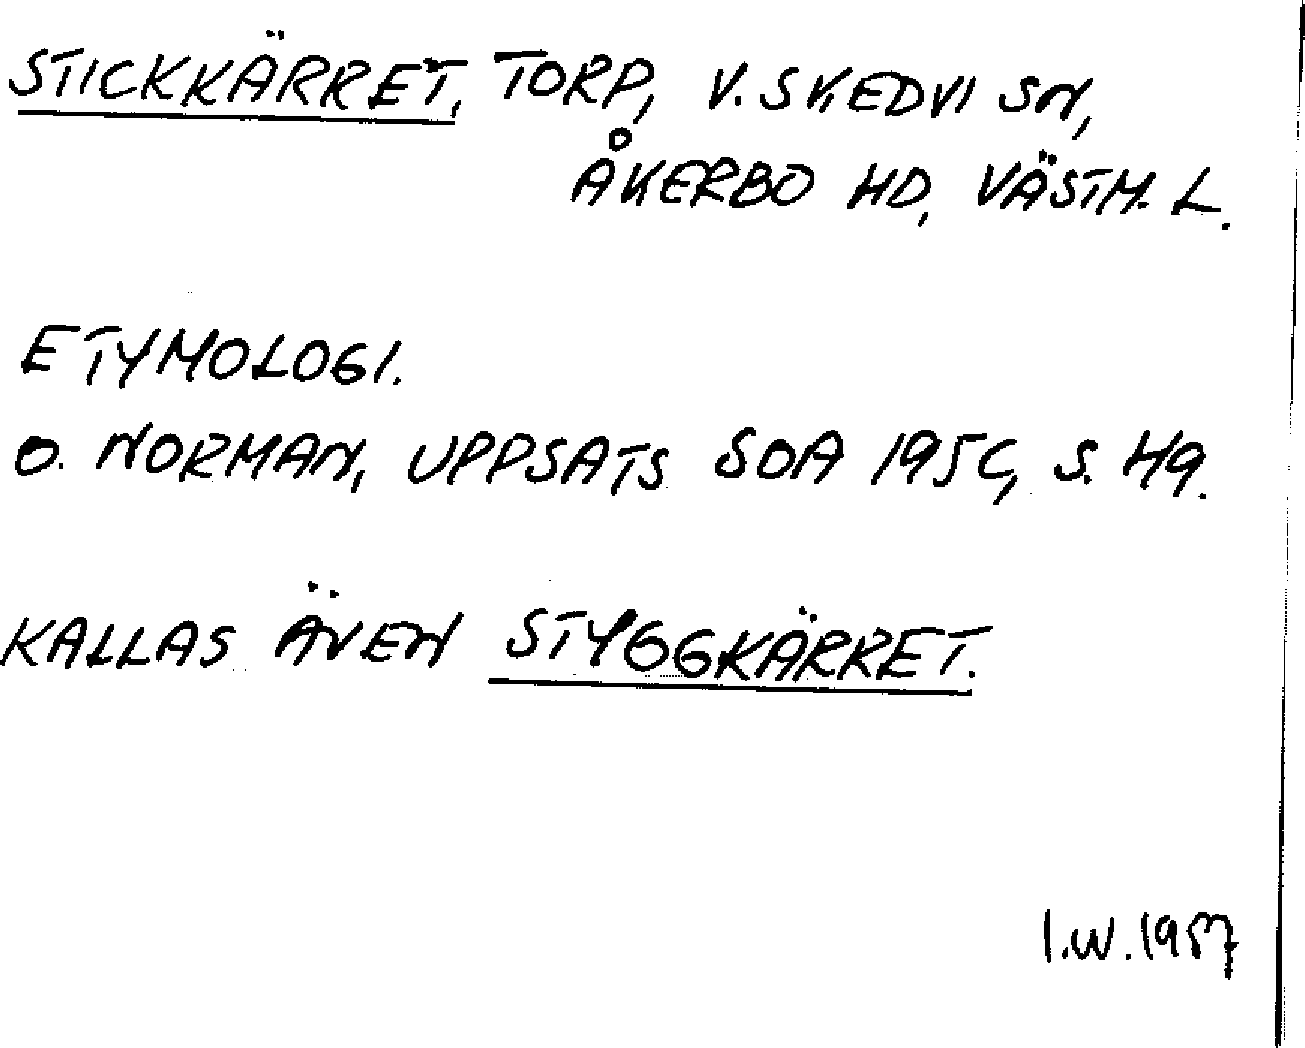 STICKKÄRRET, TORP, V. SKEDVI SN,
ÅKERBO HD, VÄSTM. L.
ETYMOLOGI.
O. NORMAN, UPPSATS SOA 1956, S. 49.
KALLAS ÄVEN STYGGKÄRRET.
I.W. 1957